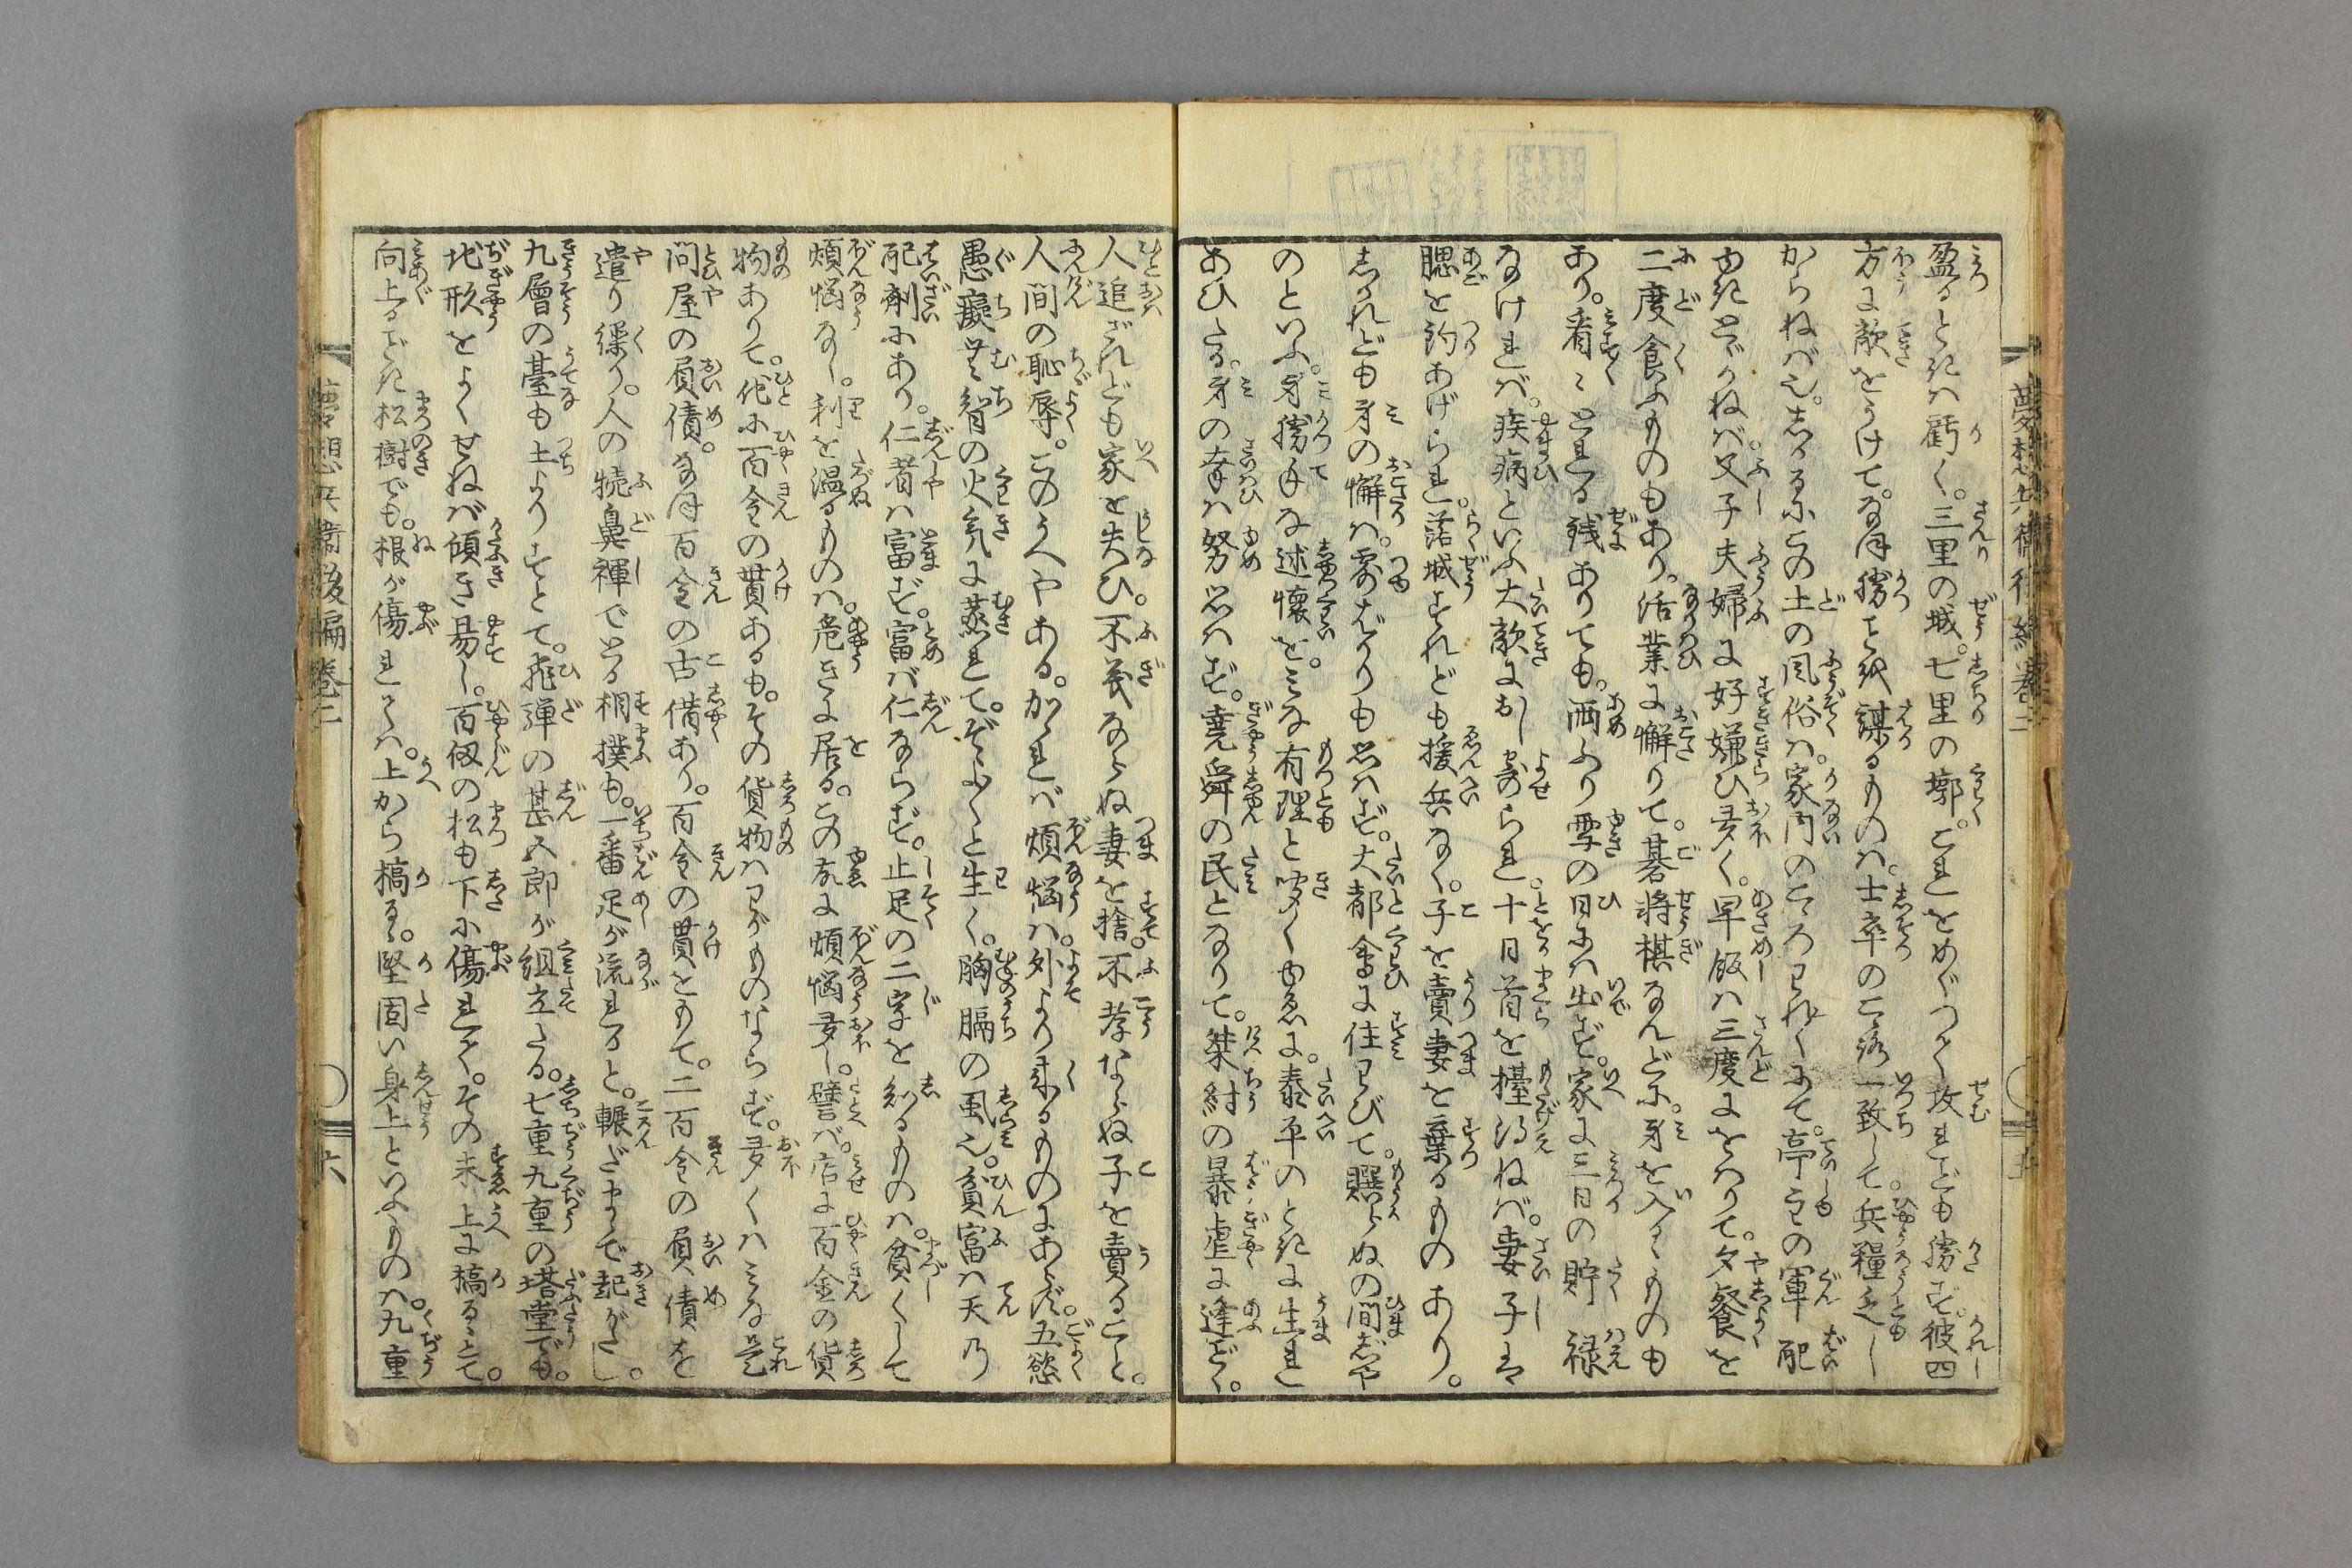 夢想兵衛後編巻二
盈るときは虧く。三里の城。七里の墎。これをめぐつて攻れども勝ず。彼四
方に敵をうけて。なほ勝を謀るものは。士卒のこゝろ一致して。兵糧乏し
からねば也。しかるにこの土の風俗は。家内のこゝろわれ〳〵にて。亭主の軍配
ゆきとゞかねば。父子夫婦に好嫌ひ多く。早飯は三度にをはりて。夕餐を
二度食ふものもあり。活業に懈りて。碁将棋なんどに。身を入るゝものも
あり。看〻とれる銭ありても。雨ふり雪の日には出ず。家に三日の貯禄
なければ。疾病といふ大敵におし寄られ。十日首を擡得ねば。妻子は
腮を釣あげられ。落城すれども援兵なく。子を賣妻を棄るものあり。
しかれども身の懈は。露ばかりも思はず。大都會に住わびて。賑はぬの間じや
のといふ。身勝手な述懐を。みな有理と咲く也。泰平のときに生れ
あひたる。身の幸は努思はず。堯舜の民となりて。桀紂の暴虐に逢ごとく。
五
人追ざれども家を失ひ。不義ならぬ妻を捨。不孝ならぬ子を賣ること。
人間の恥辱。このうへやある。かゝれば煩悩は。外より来るものにあらず。五慾
愚癡無智の火気に蒸れて。ぞく〳〵と生く。胸膈の風也。貧富は天の
配剤にあり。仁者は富ず。富ば仁ならず。止足の二字を知るものは。貧くして
煩悩なし。利を温るものは。危きに居る。この故に煩悩多し。譬ば。店に百金の貨
物ありて。他に百金の貫あるも。その貨物はわがものならず。多くはみな是
問屋の負債。なほ百金の古借あり。百金の貫をもて。二百金の負債を
遣り繰り。人の犢鼻褌でとる相撲も。一番足が流れると。輾ざまで起がたし。
九層の臺も土よりすとて。飛弾の甚五郎が組立たる。七重九重の塔堂でも。
地形をよくせねば傾き易し。百仭の松も下に傷れて。その末上に槁るとて。
向上るごとき松樹でも。根が傷れては。上から槁る。堅固い身上といふものは。九重
夢想兵衛後編巻二
六